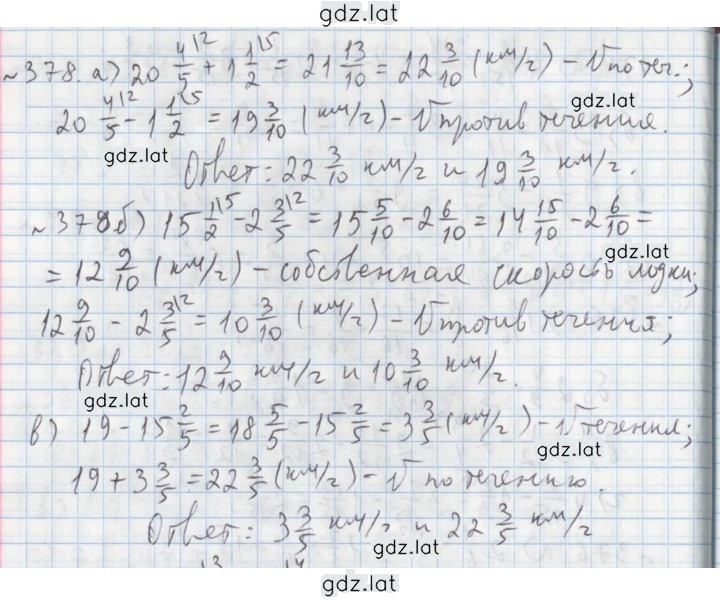 gdz.lat
№378. а) 20 4/5|2 + 1 1/2|5 = 21 13/10 = 22 3/10 (км/ч) - V по теч.;
20 4/5|2 - 1 1/2|5 = 19 3/10 (км/ч) - V против течения.
gdz.lat
gdz.lat
Ответ: 22 3/10 км/ч и 19 3/10 км/ч.
№378 б) 15 1/2|5 - 2 3/5|2 = 15 5/10 - 2 6/10 = 14 15/10 - 2 6/10 =
gdz.lat
= 12 9/10 (км/ч) - собственная скорость лодки;
12 9/10 - 2 3/5|2 = 10 3/10 (км/ч) - V против течения;
Ответ: 12 9/10 км/ч и 10 3/10 км/ч.
gdz.lat
в) 19 - 15 2/5 = 18 5/5 - 15 2/5 = 3 3/5 (км/ч) - V течения;
gdz.lat
19 + 3 3/5 = 22 3/5 (км/ч) - V по течению.
Ответ: 3 3/5 км/ч и 22 3/5 км/ч
gdz.lat
gdz.lat